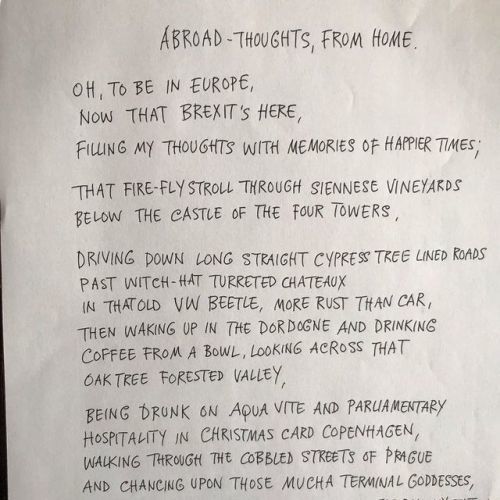 ABROAD - THOUGHTS, FROM HOME.
OH, TO BE IN EUROPE,
NOW THAT BREXIT'S HERE,
FILLING MY THOUGHTS WITH MEMORIES OF HAPPIER TIMES;
THAT FIRE-FLY STROLL THROUGH SIENNESE VINEYARDS
BELOW THE CASTLE OF THE FOUR TOWERS,
DRIVING DOWN LONG STRAIGHT CYPRESS TREE LINED ROADS
PAST WITCH-HAT TURRETED CHATEAUX
IN THAT OLD VW BEETLE, MORE RUST THAN CAR,
THEN WAKING UP IN THE DORDOGNE AND DRINKING
COFFEE FROM A BOWL, LOOKING ACROSS THAT
OAK TREE FORESTED VALLEY,
BEING DRUNK ON AQUA VITE AND PARLIAMENTARY
HOSPITALITY IN CHRISTMAS CARD COPENHAGEN,
WALKING THROUGH THE COBBLED STREETS OF PRAGUE
AND CHANCING UPON THOSE MUCHA TERMINAL GODDESSES,